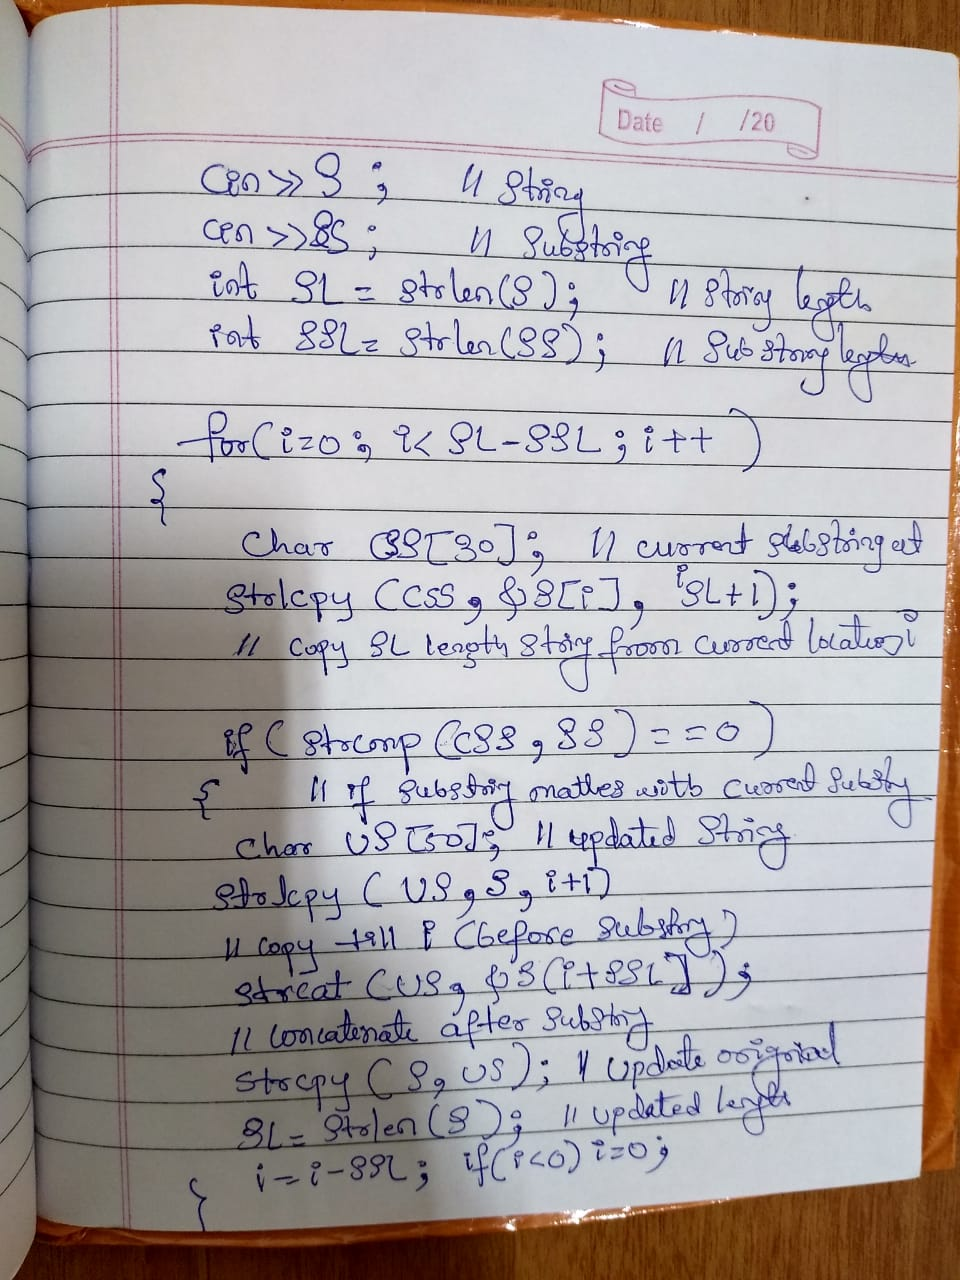 Date / /20
cin >> S ; // String
cin >> SS ; // Substring
int SL = strlen(S) ; // String length
int SSL = strlen(SS) ; // Substring length
for(i=0 ; i< SL-SSL ; i++ )
{
char CSS[30] ; // current substring at i
strlcpy (CSS, &S[i], SL+1) ;
// copy SL length string from current location i
if ( strcmp (CSS, SS ) == 0 )
{ // if substring mathes with current substry
char US [50] ; // updated String
strlcpy ( US, S, i+1)
// copy till i (before substry)
strcat (US, &S(i+SSL] ) ;
// concatenate after substrig
strcpy ( S, US ) ; // update original
SL = strlen(S) ; // updated length
i = i-SSL ; if(i<0) i=0 ;
}